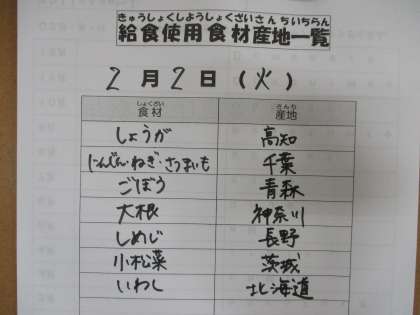 きゅうしょくしようしょくざいさんちいちらん
給食使用食材産地一覧
2月2日(火)
しょくざい さんち
食材 産地
しょうが 高知
にんじん・ねぎ・さつまいも 千葉
ごぼう 青森
大根 神奈川
しめじ 長野
小松菜 茨城
いわし 北海道